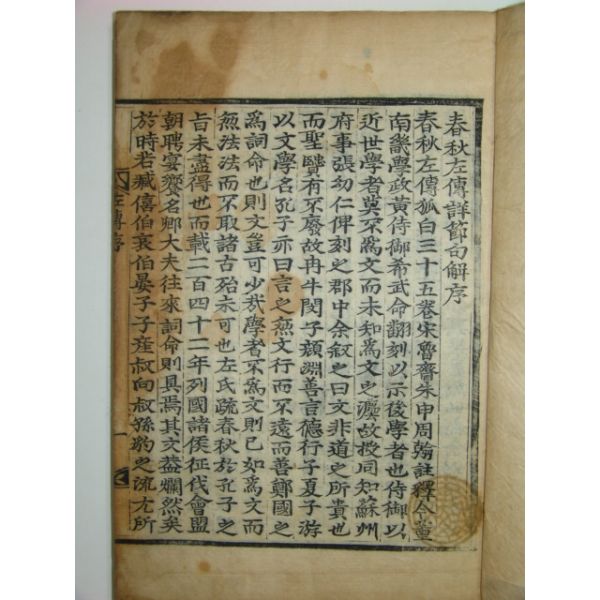 春秋左傳詳節句解序
春秋左傳狐白三十五卷宋魯齋朱申周翰註釋今董
南畿學政黃侍御希武命翻刻以示後學者也侍御以
近世學者莫不爲文而未知爲文之灋故授同知蘇州
府事張幼仁俾刻之郡中余叙之曰文非道之所貴也
而聖賢有不廢故冉牛閔子顏淵善言德行子夏子游
以文學名孔子亦曰言之無文行而不遠而善鄭國之
爲詞命也則文豈可少哉學者不爲文則已如爲文而
無法法而不取諸古殆未可也左氏疏春秋於孔子之
旨未盡得也而載二百四十二年列國諸侯征伐會盟
朝聘宴饗名卿大夫往來詞命則具焉其文蓋爛然矣
於時若臧僖伯哀伯晏子子產叔向叔孫豹之流尤所
左傳序
一